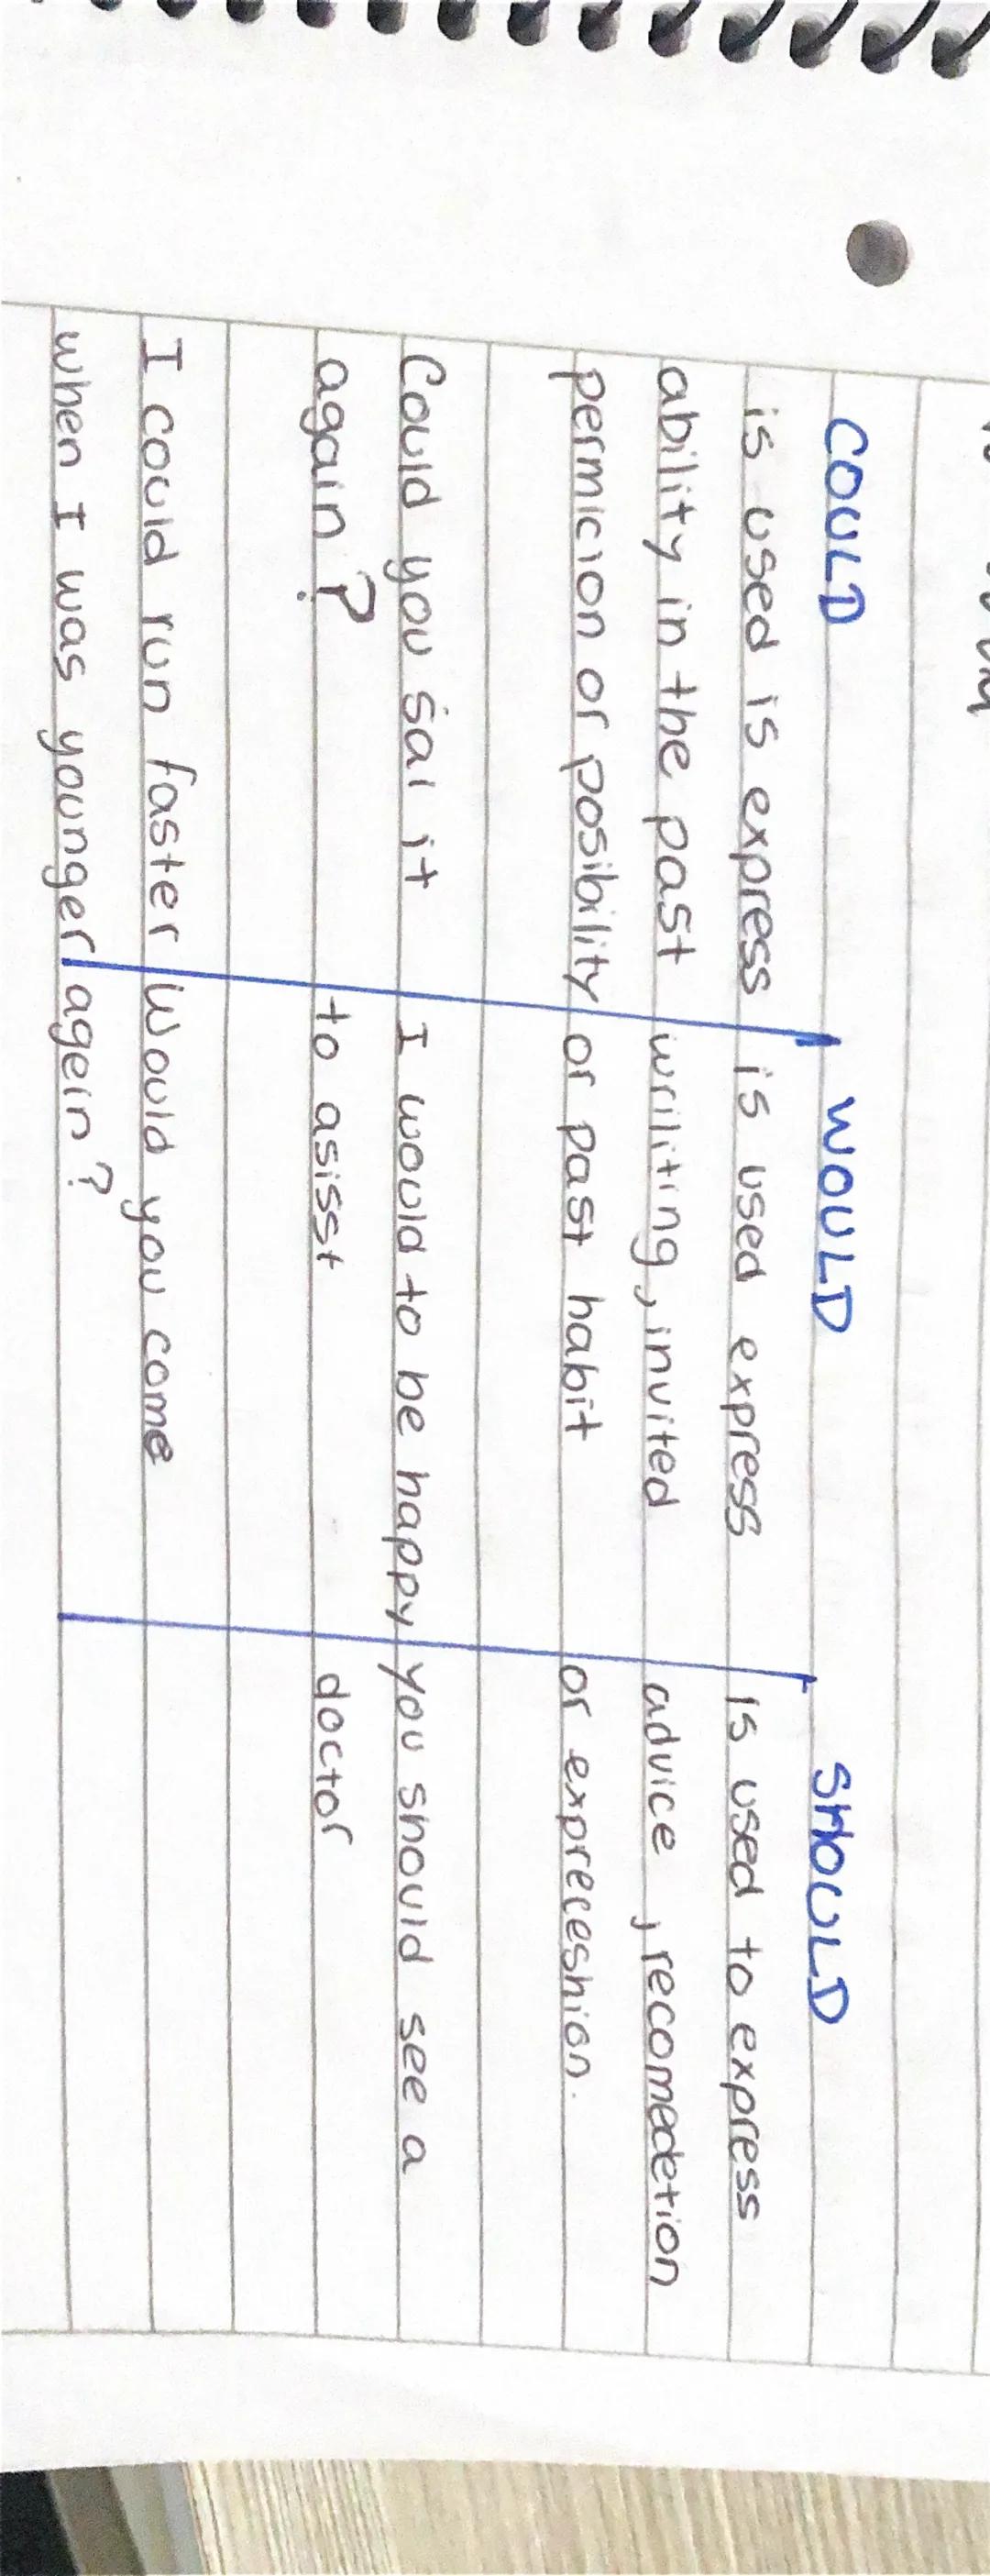 COULD WOULD SHOULD
is used is express is used express is used to express
ability in the past wriliting, invited advice, recomedetion
permicion or posibility or past habit or expreceshion.
Could you sai it I would to be happy you should see a
again? to asisst doctor
I could run faster Would you come
when I was younger agein?